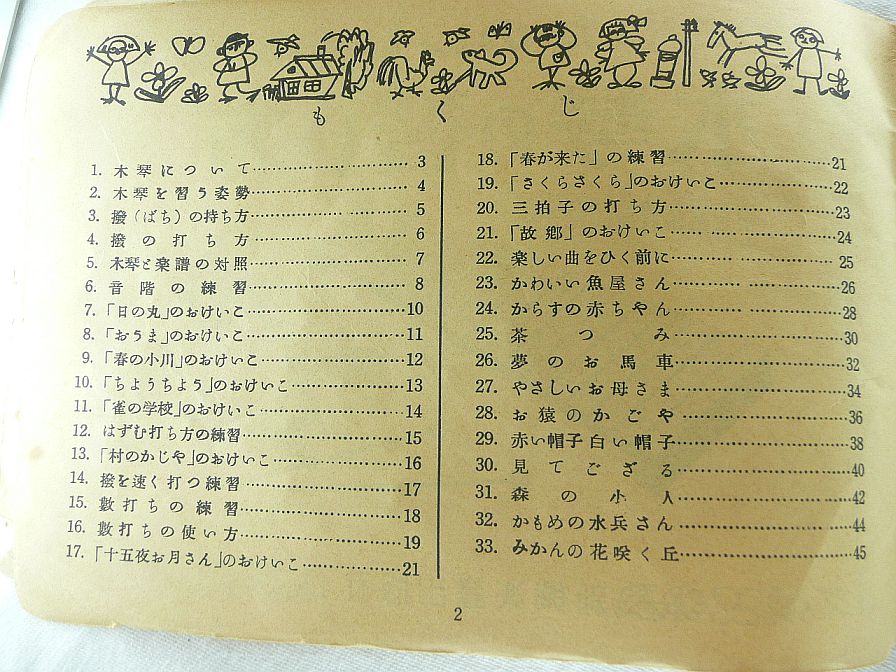 もくじ
1. 木琴について 3
2. 木琴を習う姿勢 4
3. 撥(ばち)の持ち方 5
4. 撥の打ち方 6
5. 木琴と楽譜の対照 7
6. 音階の練習 8
7. 「日の丸」のおけいこ 10
8. 「おうま」のおけいこ 11
9. 「春の小川」のおけいこ 12
10. 「ちょうちょう」のおけいこ 13
11. 「雀の学校」のおけいこ 14
12. はずむ打ち方の練習 15
13. 「村のかじや」のおけいこ 16
14. 撥を速く打つ練習 17
15. 數打ちの練習 18
16. 數打ちの使い方 19
17. 「十五夜お月さん」のおけいこ 21
18. 「春が来た」の練習 21
19. 「さくらさくら」のおけいこ 22
20. 三拍子の打ち方 23
21. 「故郷」のおけいこ 24
22. 楽しい曲をひく前に 25
23. かわいい魚屋さん 26
24. からすの赤ちゃん 28
25. 茶つみ 30
26. 夢のお馬車 32
27. やさしいお母さま 34
28. お猿のかごや 36
29. 赤い帽子白い帽子 38
30. 見てござる 40
31. 森の小人 42
32. かもめの水兵さん 44
33. みかんの花咲く丘 45
2